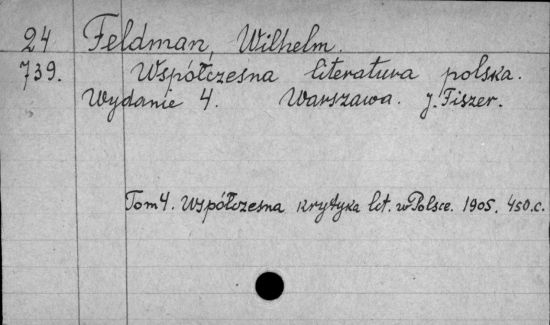 24 Feldman, Wilhelm.
739. Współczesna literatura polska.
Wydanie 4. Warszawa. J. Fiszer.
Tom 4. Współczesna krytyka lit. w Polsce. 1905. 450.c.